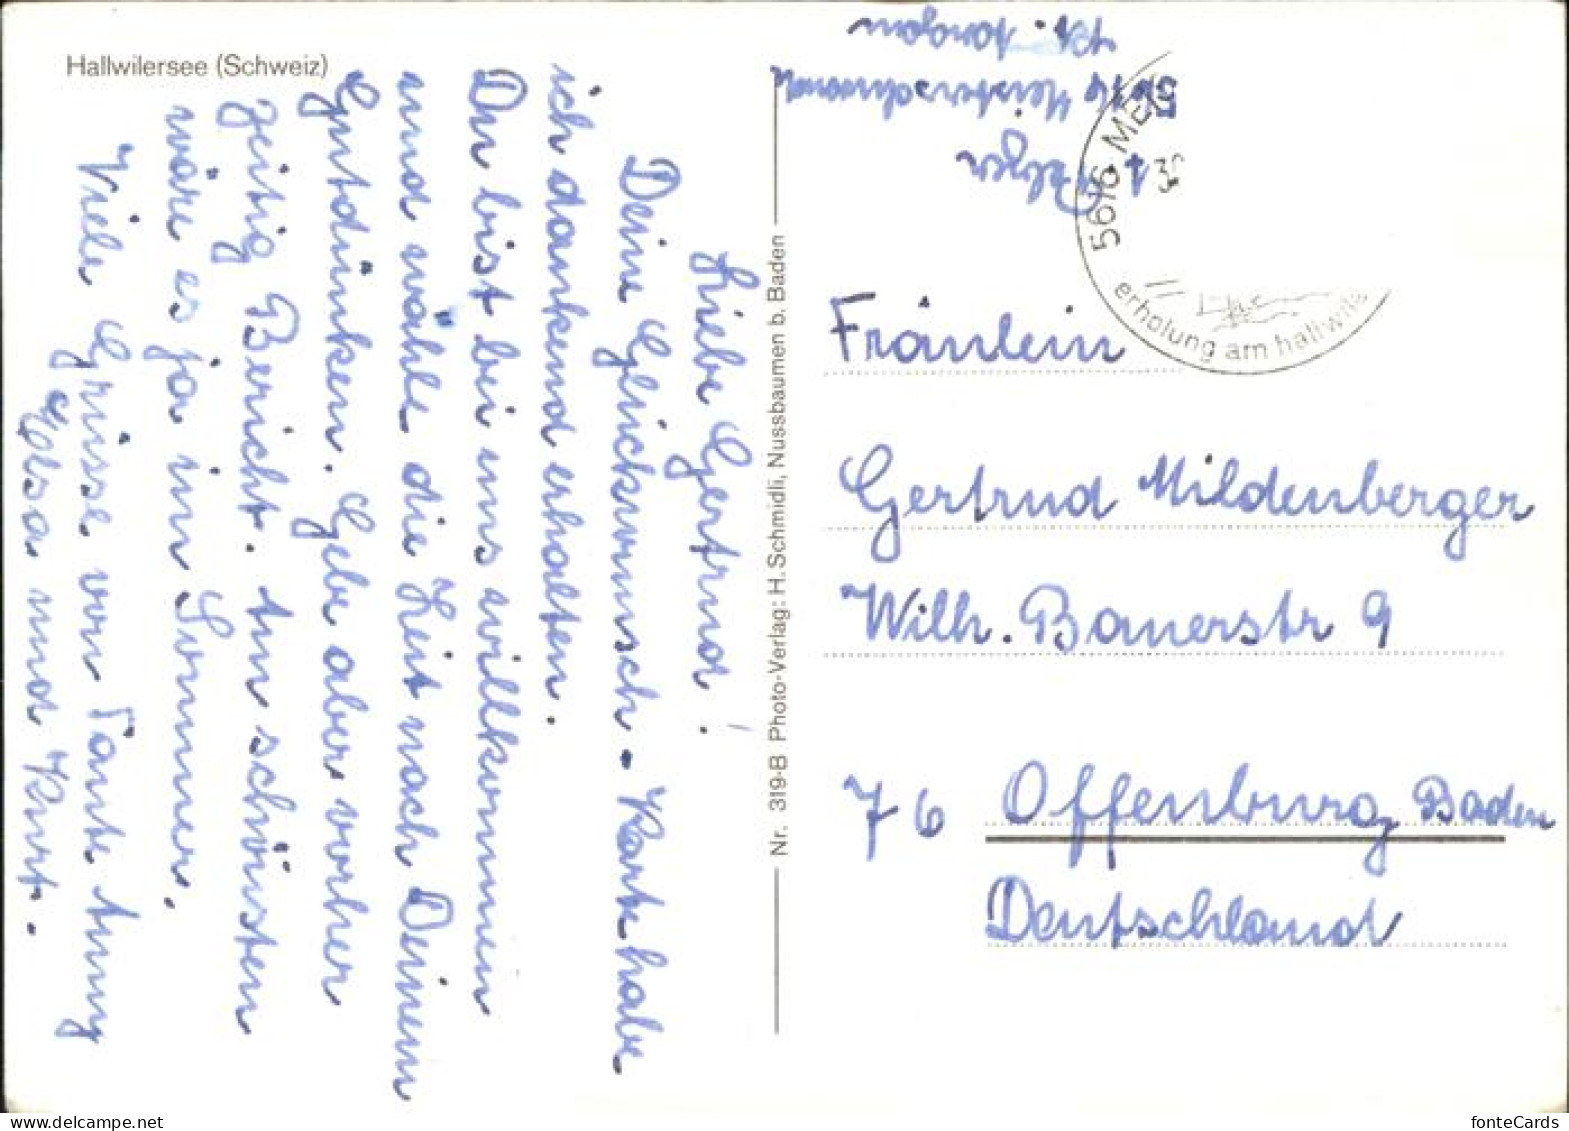 Hallwilersee (Schweiz)
Liebe Gertrud!
Deine Glückwunsch-Karte habe
ich dankend erhalten.
Du bist bei uns willkommen
und wähle die Zeit nach Deinem
Gutdünken. Gebe aber vorher
zeitig Bericht. Am schönsten
wäre es ja im Sommer.
Viele Grüsse von Tante Anny
Elsa und Kurt.
Nr. 319-B Photo-Verlag: H. Schmidli, Nussbaumen b. Baden
5616 Meisterschwanden
Kt. Aargau
5616 ME
erholung am hallwile
Fräulein
Gertrud Mildenberger
Wilh. Bauerstr 9
76 Offenburg Baden
Deutschland
fonteCards